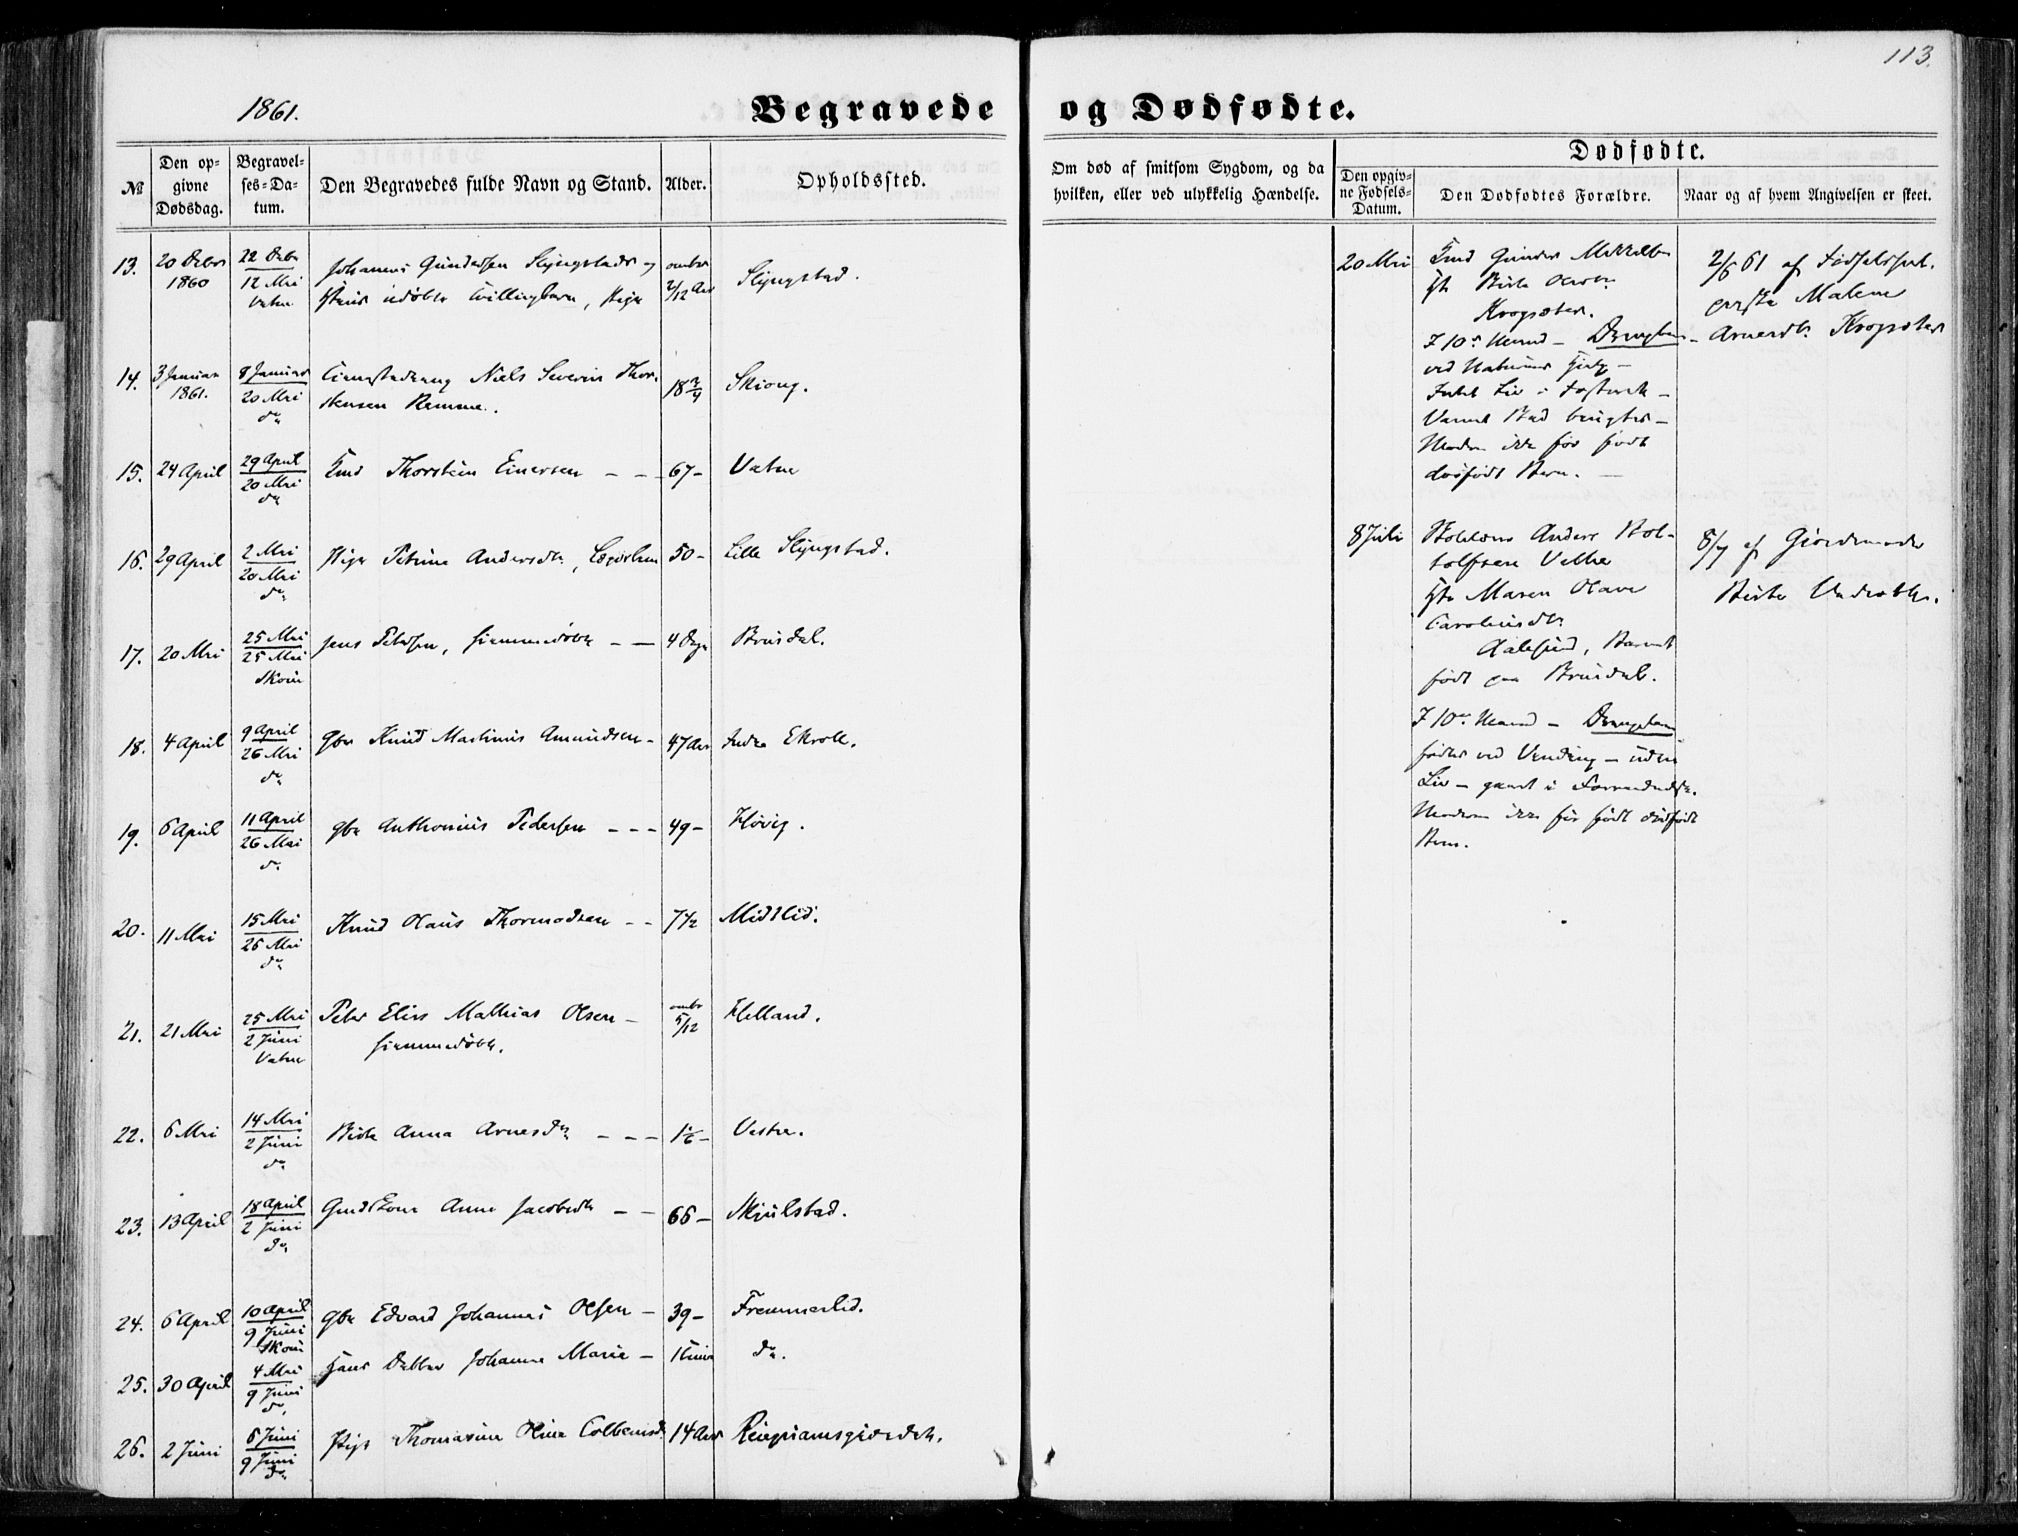 113.
1861.
Begravede og Dødfødte.
№
Den opgivne Dødsdag.
Begravelses-Datum.
Den Begravedes fulde Navn og Stand.
Alder.
Opholdssted.
Om død af smitsom Sygdom, og da hvilken, eller ved ulykkelig Hændelse.
Dødfødte.
Den opgivne Fødsels-Datum.
Den Dødfødtes Forældre.
Naar og af hvem Angivelsen er skeet.
13. 20 Debr 1860 22 Debr 12 Mai Vatne
Johannes Gundersen Slyngstads
udøbte Tvillingbarn, Pige
2/12 Aar Slyngstad.
14. 3 Januar 1861. 8 Januar 20 Mai do
Niels Severin Thor-
stensen Remme.
18 3/4 Skiong.
15. 24 April 29 April 20 Mai do
Thorstein Einersen 67 - Vatne
16. 29 April 2 Mai 20 Mai do
Pige Petrine Andersdtr, Lægdslem 50 - Lille Slyngstad.
17. 20 Mai 25 Mai 25 Mai Skoue
Jens Petersen, hiemmedøbt 4 Dage Brusdal.
18. 4 April 9 April 26 Mai do
Gbr Knud Martinus Amundsen - 47 Aar Indre Ekroll.
19. 6 April 11 April 26 Mai do
Gbr Anthonius Pedersen - - - 49 - Høvig.
20. 11 Mai 15 Mai 26 Mai do
Knud Olaus Thormodsen - - 7 1/2 Midtlid.
21. 21 Mai 25 Mai 2 Juni Vatne
Peter Elias Mathias Olsen -
hiemmedøbt.
5/12 Helland.
22. 6 Mai 14 Mai 2 Juni do
Anna Arnesdr - - - 1 1/6 - Vestre.
23. 13 April 18 April 2 Juni do
Anne Jacobsdtr - - 66 - Skjulstad.
24. 6 April 10 April 9 Juni Skoue
Gbr Edvard Johannes Olsen - 39 - Fremmerlid.
25. 30 April 4 Mai 9 Juni do
Hans Datter Johanne Marie - do.
26. 2 Juni 6 Juni 9 Juni do
Pige Thomasine Oline Colbensd 14 Aar
20 Mai
Gunder Mikkels
Olsdtr
Krogsæter.
I 10de Maaned - Drengebarn
ved Naturens Hielp -
Intet Liv i Fosteret -
Varmt Bad brugtes -
Moderen ikke før født
dødfødt Barn. -
2/6 61 af Fødselshiel-
perske Malene
Arnesdtr Krogsæter
8 Juli
Anders Rol-
Hu Maren Olave
Carolinsdtr
Aalesund, Barnet
født paa Brusdal.
I 10de Maaned - Drengebarn
født ved Vending - uden
Liv - gaaet i Forraadnelse.
Moderen ikke før født dødfødt
Barn.
8/7 af Giordemoder